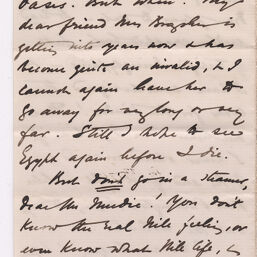 Oasis. But when? My
dear friend Mrs Brayshor is
getting into years now & has
become quite an invalid, & I
cannot again leave her to
go away for very long or very
far. Still I hope to see
Egypt again before I die.
But don't go in a steamer,
dear Mr Mudie! You don't
know the real Nile feeling, or
even know what Nile life is